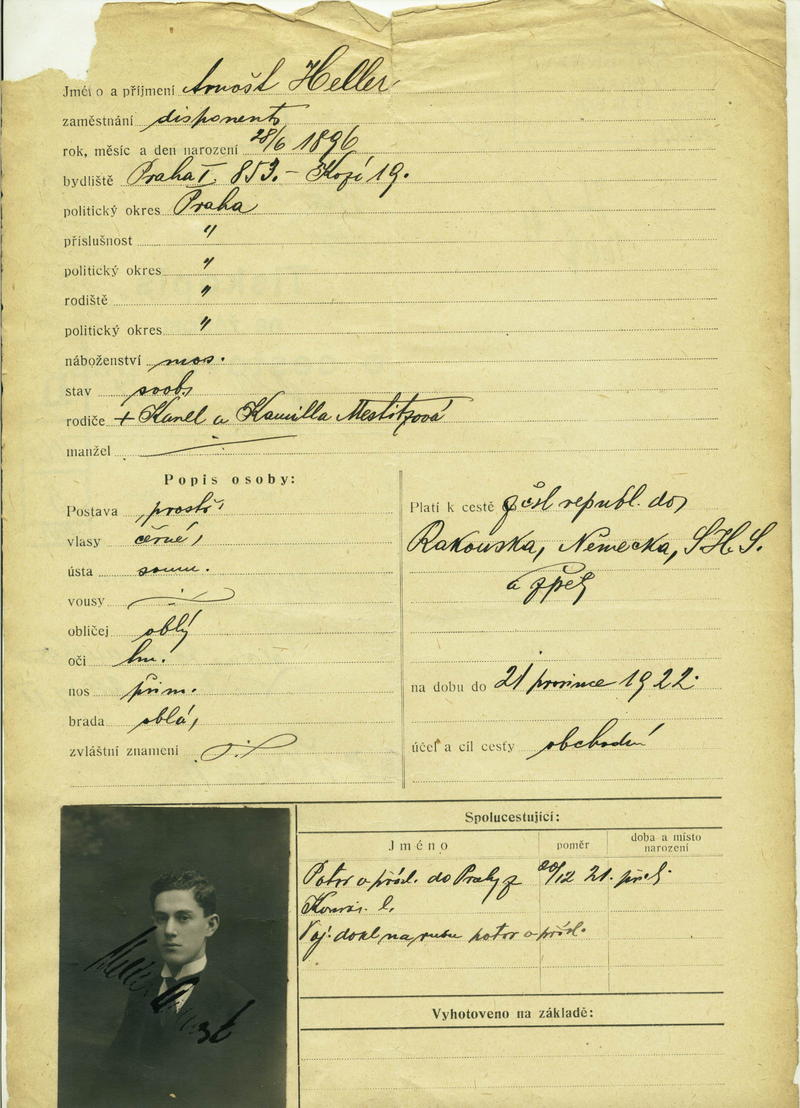 Jméno a příjmení Arnošt Heller
zaměstnání disponent
rok, měsíc a den narození 28/6 1896
bydliště Praha I. 853. - Kozí 19.
politický okres Praha
příslušnost "
politický okres "
rodiště "
politický okres "
náboženství mos.
stav svob.
rodiče + Karel a Kamilla Mestitzová
manžel
Popis osoby:
Postava prostř.
vlasy černé,
ústa soum.
vousy
obličej oblý
oči hn.
nos přim.
brada oblá,
zvláštní znamení
Platí k cestě z čsl republ. do
Rakouska, Německa, S.H.S.
a zpět
na dobu do 21 prosince 1922.
účel a cíl cesty obchodní
Spolucestující:
Jméno poměr doba a místo narození
Potvr o přísl. do Prahy z 20/12 21. přil.
Voj. dokl na rubu potvr o přísl.
Heller Arnošt
Vyhotoveno na základě: